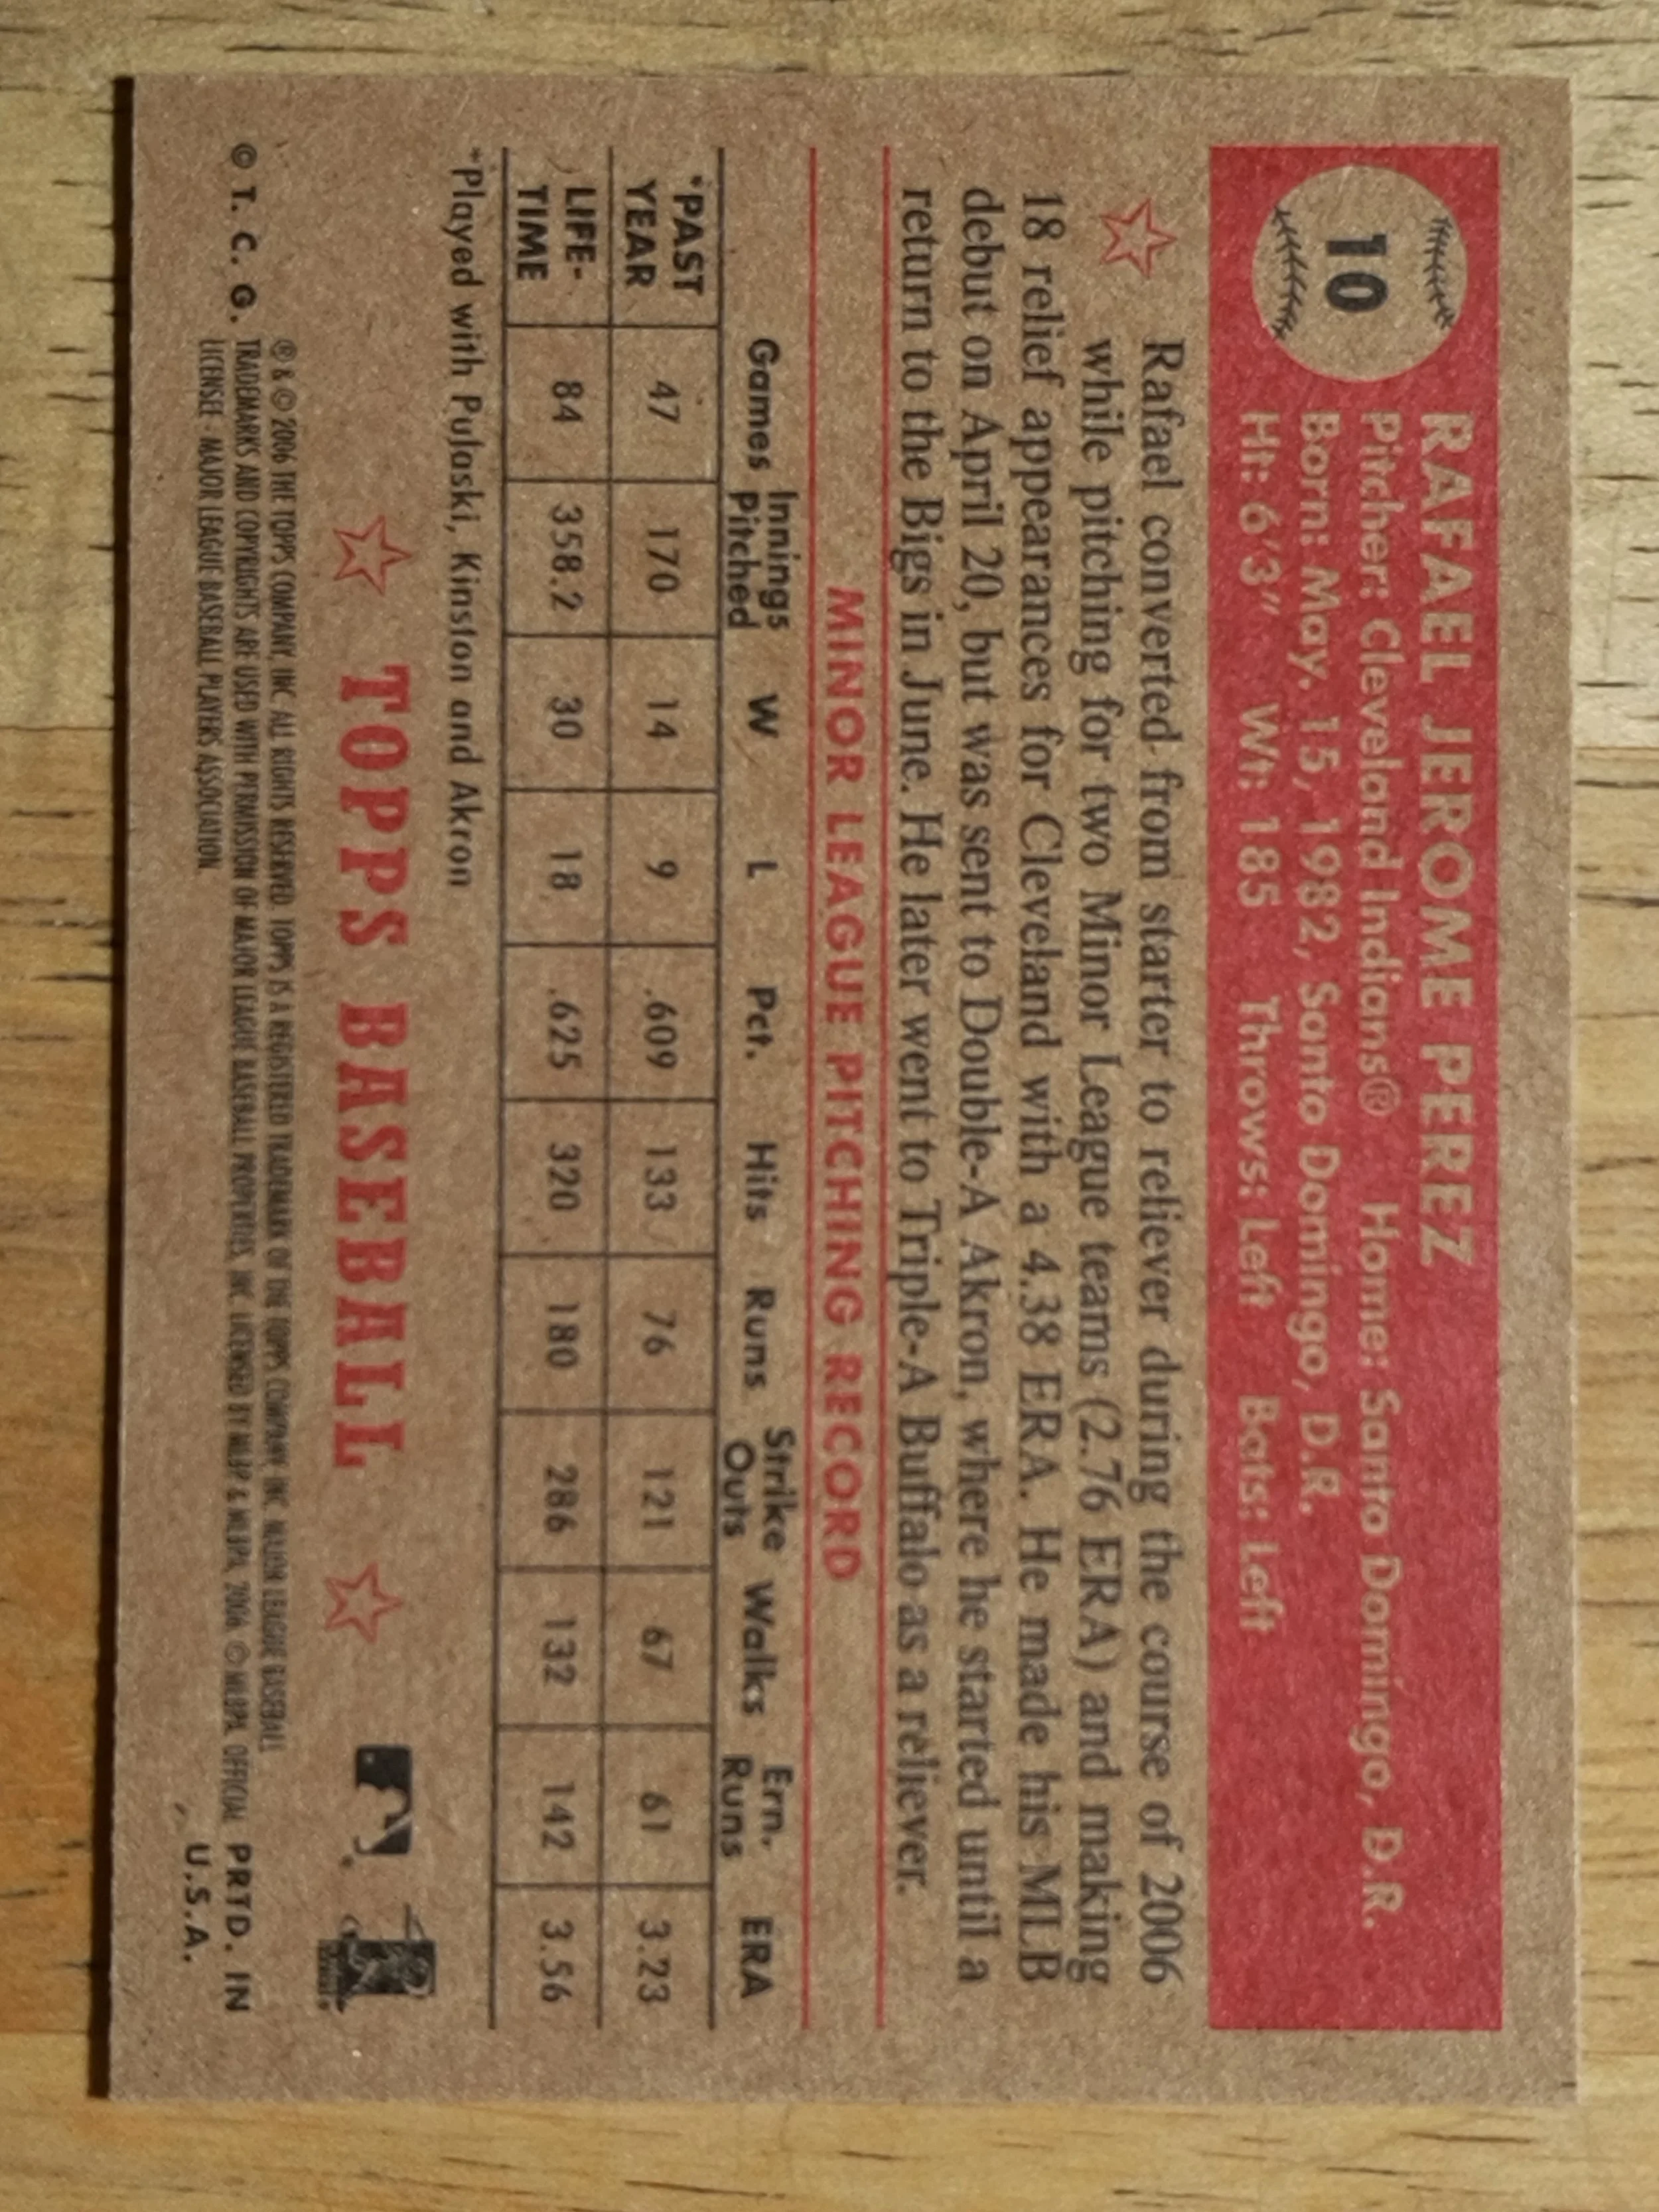 10
RAFAEL JEROME PEREZ
Pitcher: Cleveland Indians® Home: Santo Domingo, D.R.
Born: May. 15, 1982, Santo Domingo, D.R.
Ht: 6'3" Wt: 185 Throws: Left Bats: Left
Rafael converted from starter to reliever during the course of 2006
while pitching for two Minor League teams (2.76 ERA) and making
18 relief appearances for Cleveland with a 4.38 ERA. He made his MLB
debut on April 20, but was sent to Double-A Akron, where he started until a
return to the Bigs in June. He later went to Triple-A Buffalo as a reliever.
MINOR LEAGUE PITCHING RECORD
Games Innings Pitched W L Pct. Hits Runs Strike Outs Walks Ern. Runs ERA
*PAST YEAR 47 170 14 9 .609 133 76 121 67 61 3.23
LIFE-TIME 84 358.2 30 18 .625 320 180 286 132 142 3.56
*Played with Pulaski, Kinston and Akron
TOPPS BASEBALL
® & © 2006 THE TOPPS COMPANY, INC. ALL RIGHTS RESERVED. TOPPS IS A REGISTERED TRADEMARK OF THE TOPPS COMPANY, INC. MAJOR LEAGUE BASEBALL
© T. C. G. TRADEMARKS AND COPYRIGHTS ARE USED WITH PERMISSION OF MAJOR LEAGUE BASEBALL PROPERTIES, INC. LICENSED BY MLBP & MLBPA, 2006 © MLBPA, OFFICIAL PRTD. IN
LICENSEE - MAJOR LEAGUE BASEBALL PLAYERS ASSOCIATION. U.S.A.